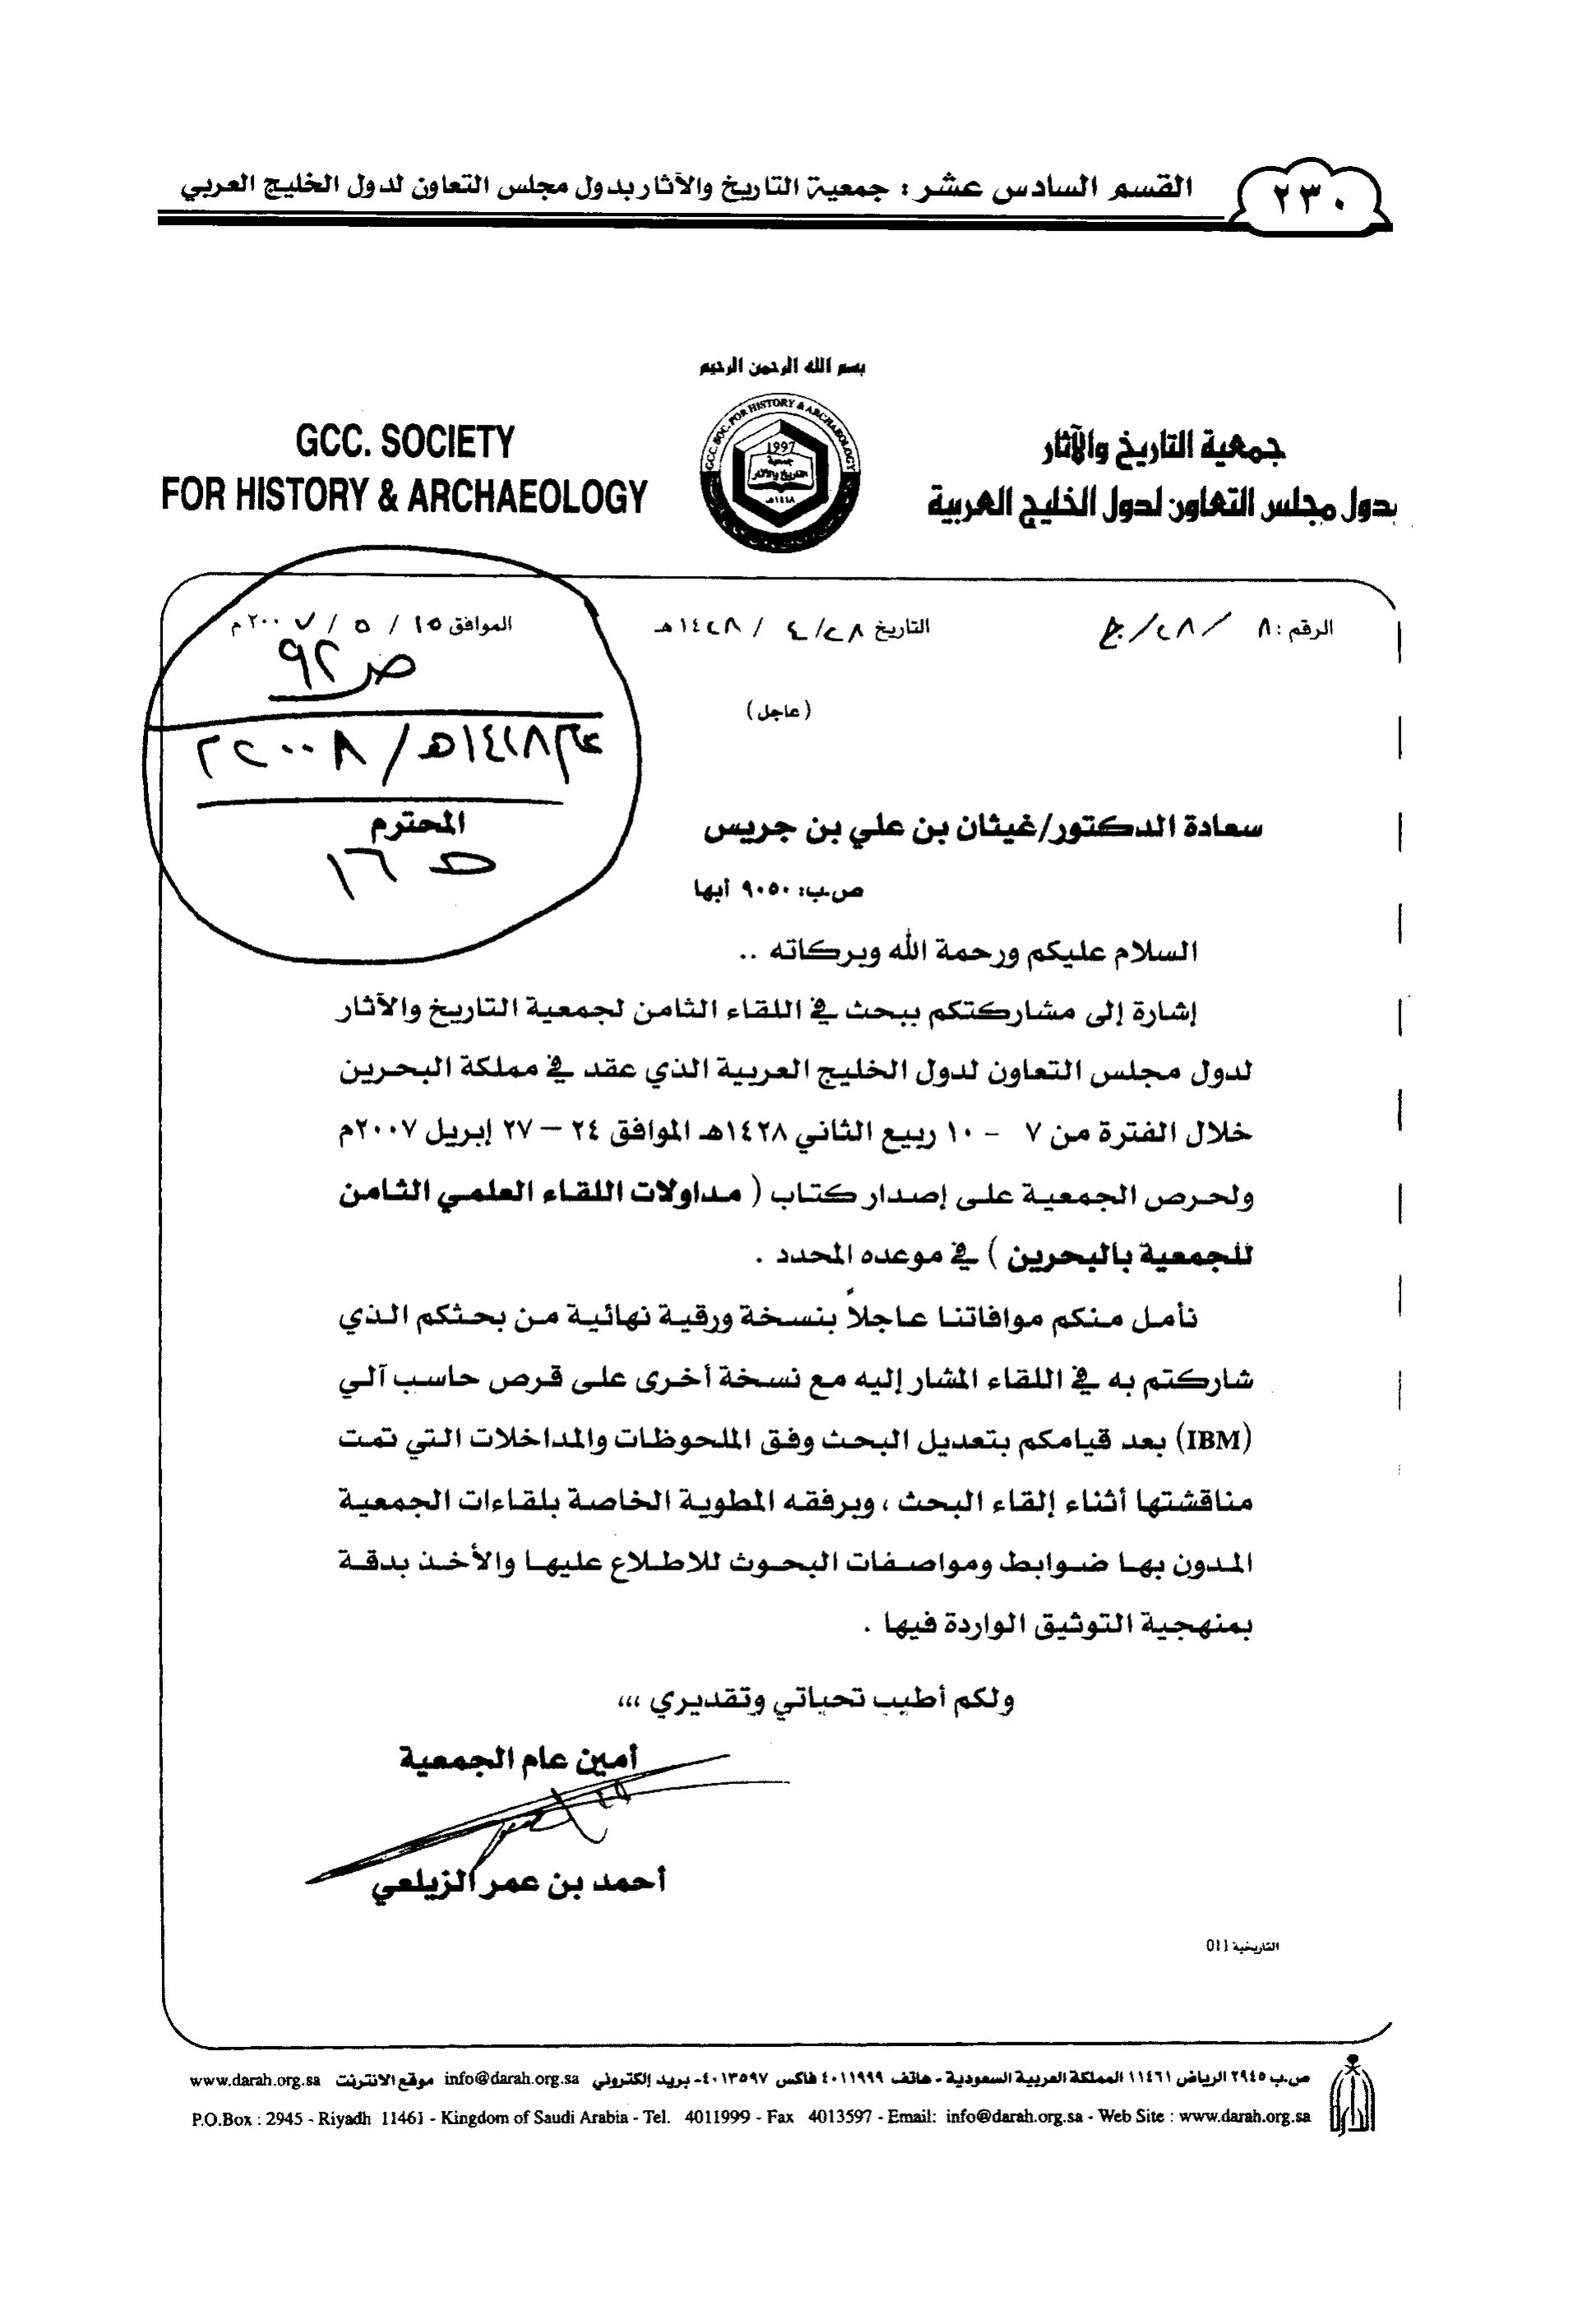 ٢٣٠
القسم السادس عشر : جمعية التاريخ والآثار بدول مجلس التعاون لدول الخليج العربي
بسم الله الرحمن الرحيم
جمعية التاريخ والآثار
بدول مجلس التعاون لدول الخليج العربية
GCC. SOC. FOR HISTORY & ARCHAEOLOGY
1997
جمعية
التاريخ والآثار
١٤١٨هـ
GCC. SOCIETY
FOR HISTORY & ARCHAEOLOGY
الرقم : ٨ / ٢٨ / ج
التاريخ ٢٨ / ٤ / ١٤٢٨هـ
الموافق ١٥ / ٥ / ٢٠٠٧م
ص ٩٢
(عاجل)
١٤٢٨هـ / ٢٠٠٨م
سعادة الدكتور/غيثان بن علي بن جريس
المحترم
ص.ب: ٩٠٥٠ أبها
السلام عليكم ورحمة الله وبركاته ..
إشارة إلى مشاركتكم ببحث في اللقاء الثامن لجمعية التاريخ والآثار
لدول مجلس التعاون لدول الخليج العربية الذي عقد في مملكة البحرين
خلال الفترة من ٧ - ١٠ ربيع الثاني ١٤٢٨هـ الموافق ٢٤ – ٢٧ إبريل ٢٠٠٧م
ولحرص الجمعية على إصدار كتاب ( مداولات اللقاء العلمي الثامن
للجمعية بالبحرين ) في موعده المحدد .
نأمل منكم موافاتنا عاجلاً بنسخة ورقية نهائية من بحثكم الذي
شاركتم به في اللقاء المشار إليه مع نسخة أخرى على قرص حاسب آلي
(IBM) بعد قيامكم بتعديل البحث وفق الملحوظات والمداخلات التي تمت
مناقشتها أثناء إلقاء البحث ، وبرفقه المطوية الخاصة بلقاءات الجمعية
المدون بها ضوابط ومواصفات البحوث للاطلاع عليها والأخذ بدقة
بمنهجية التوثيق الواردة فيها .
ولكم أطيب تحياتي وتقديري ،،،
أمين عام الجمعية
أحمد بن عمر الزيلعي
التاريخية 011
ص.ب ٢٩٤٥ الرياض ١١٤٦١ المملكة العربية السعودية - هاتف ٤٠١١٩٩٩ فاكس ٤٠١٣٥٩٧- بريد إلكتروني info@darah.org.sa موقع الانترنت www.darah.org.sa
P.O.Box : 2945 - Riyadh 11461 - Kingdom of Saudi Arabia - Tel. 4011999 - Fax 4013597 - Email: info@darah.org.sa - Web Site : www.darah.org.sa